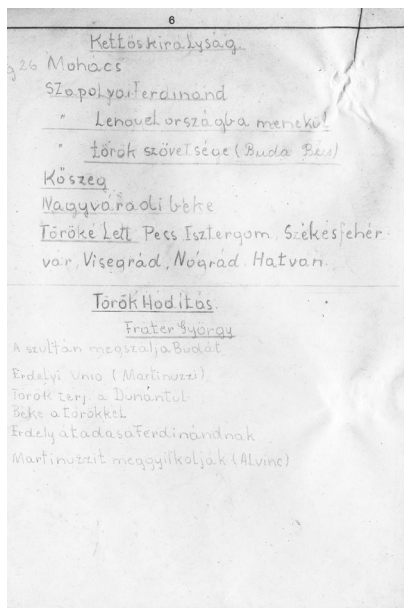 6
Kettőskirályság
926 Mohács
Szapolyai Ferdinánd
" Lengyelországba menekül
" török szövetsége (Buda Bécs)
Kőszeg
Nagyváradi béke
Töröké Lett Pécs Esztergom, Székesfehér-
vár, Visegrád, Nógrád. Hatvan.
Török Hóditás.
Fráter György
A szultán megszálja Budát
Erdélyi Unió (Martinuzzi)
Török terj. a Dunántul
Béke a törökkel
Erdély átadása Ferdinándnak
Martinuzzit meggyilkolják (Alvinc)